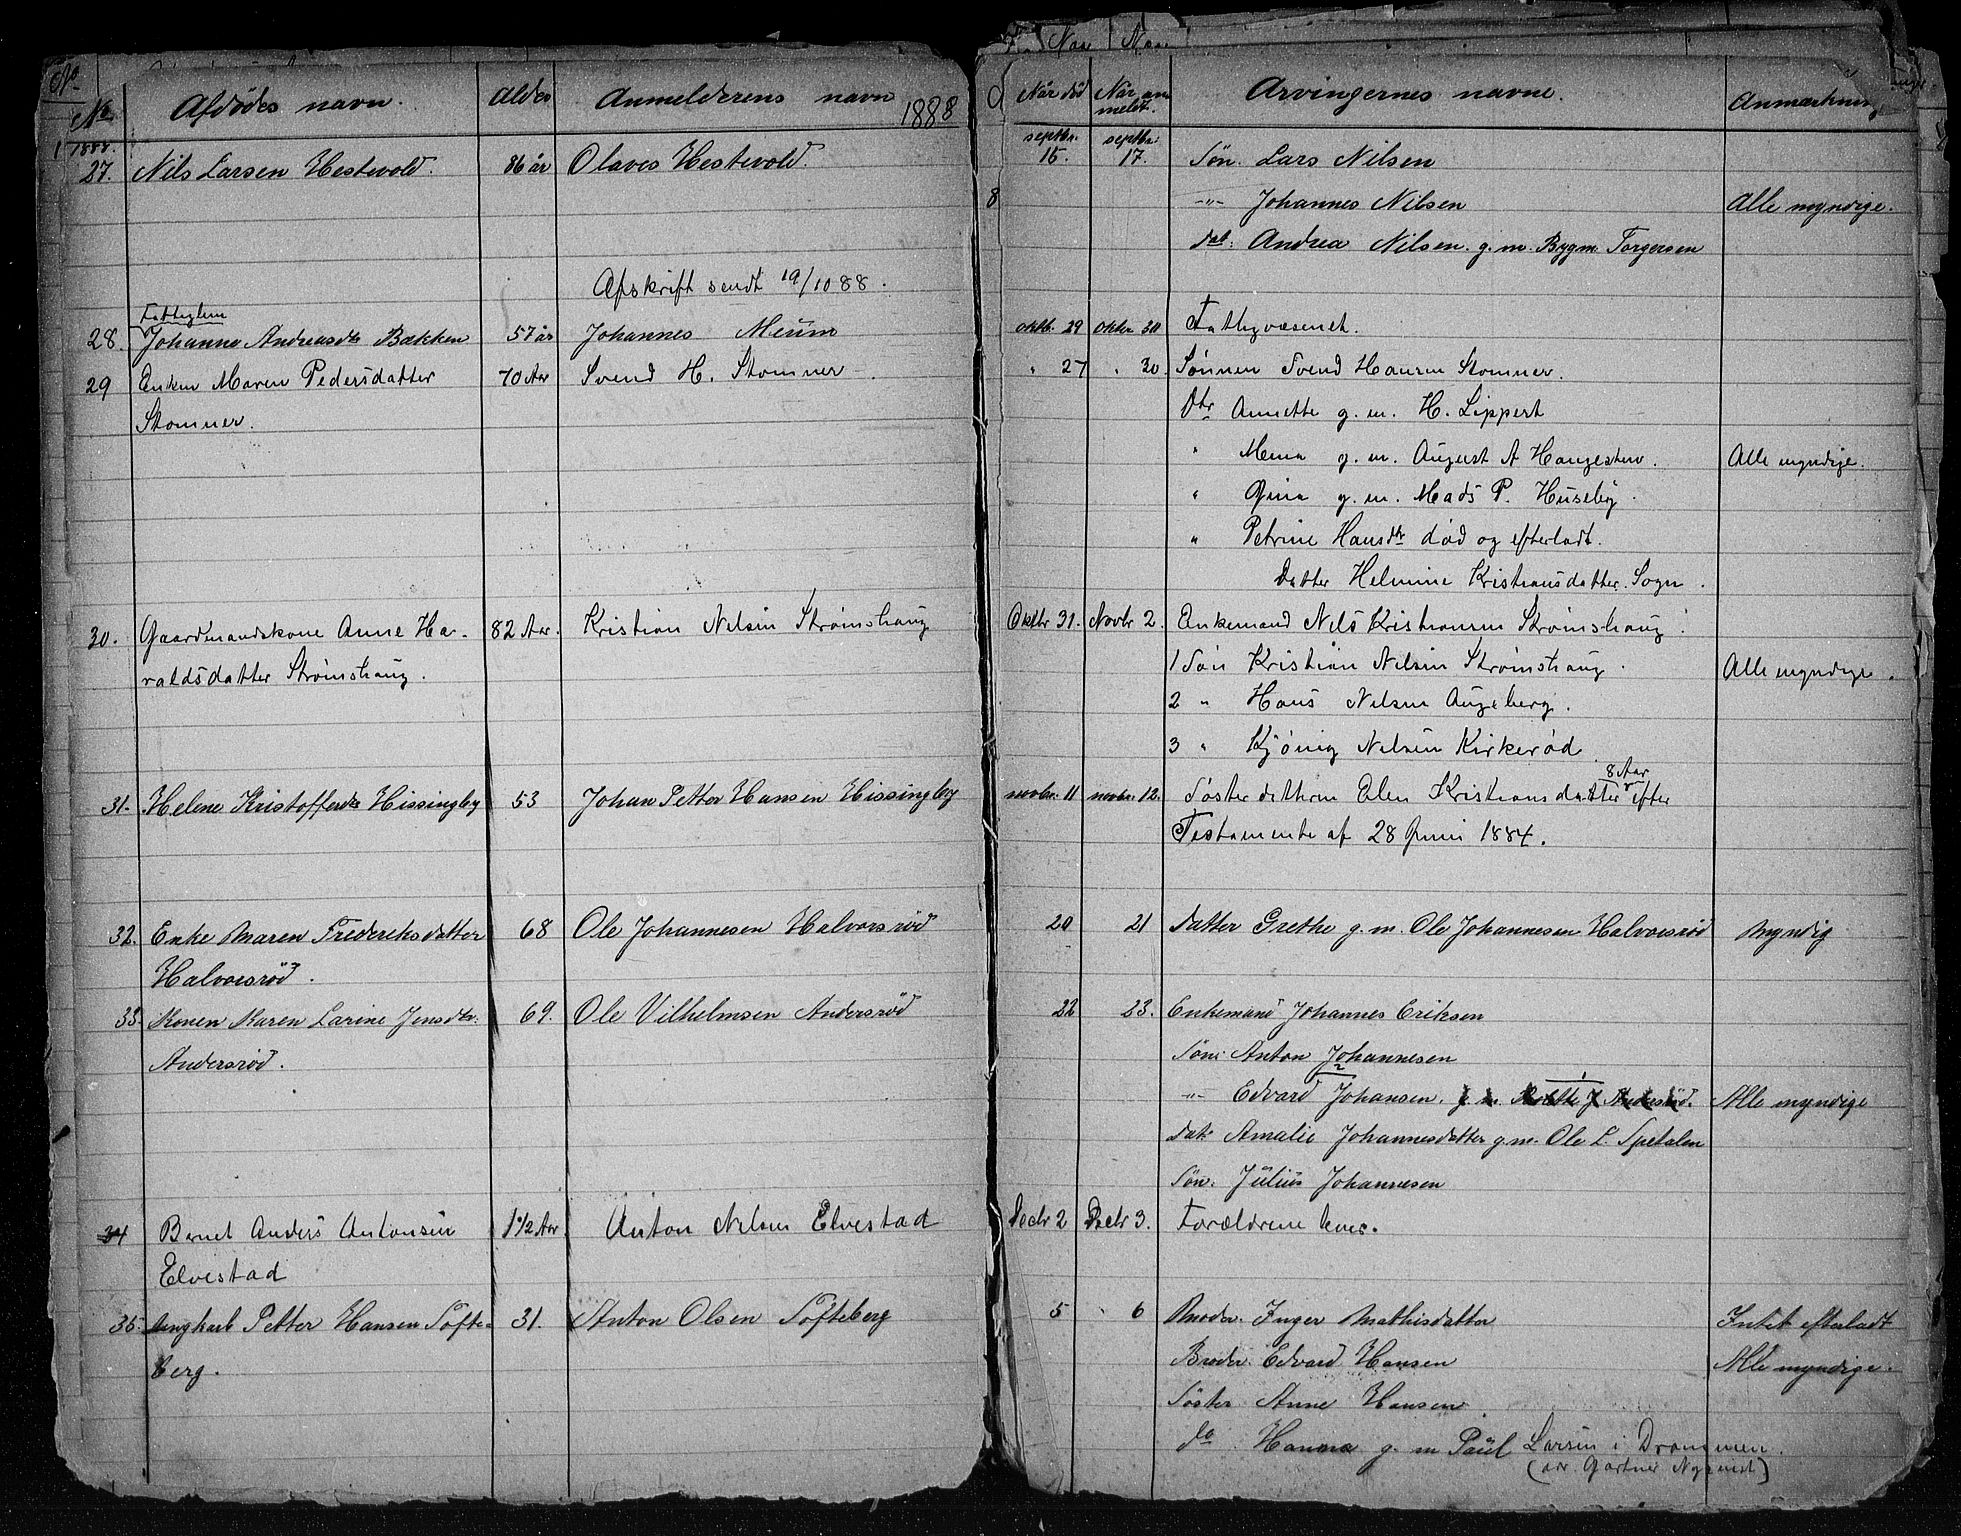 No
No
Afdødes navn.
Alder
Anmelderens navn
1888
Når død
Når anmeldt.
Arvingernes navne.
Anmærkning
1888.
27. Nils Larsen Hestevold. 86 år Olaves Hestevold. septbr. 15. septbr. 17. Søn. Lars Nilsen
8 -"- Johannes Nilsen Alle myndige.
Dat. Andrea Nilsen. g. m. Bygm. Torgersen
Afskrift sendt 19/10 88.
Fattiglem
28. Johanne Andreasdtr Bækken 57 år Johannes Meum oktb. 29 oktbr 30 Fattigvæsenet.
29 Enken Maren Pedersdatter 70 Aar Svend H. Stomner " 27 " 30. Sønnen Svend Hansen Stomner.
Stomner. Dtr Annette g. m. H. Lippert
" Mina g. m. August A Haugesten. Alle myndige.
" Gina g. m. Mads P. Huseby.
" Petrine Hansdtr død og efterladt.
Datter Helmine Kristiansdatter. Sogn.
30. Gaardmandskone Anne Ha- 82 Aar. Kristian Nilsen Strømshaug Oktbr 31. Novbr 2. Enkemand Nils Kristiansen Strømshaug.
raldsdatter Strømshaug. 1 Søn Kristian Nilsen Strømshaug. Alle myndige.
2 " Hans Nilsen Augeberg.
3 " Kjønig Nilsen Kirkerød
8 Aar
31. Helene Kristoffersdtr Hissingby 53 Johan Petter Hansen Hissingby novbr. 11 novbr. 12. Søsterdatteren Elen Kristiansdatter efter
Testamente af 28 Juni 1884.
32. Enke Maren Frederiksdatter 68 Ole Johannesen Halvorsrød 20 21 Datter Grethe g. m. Ole Johannesen Halvorsrød Myndig
Halvorsrød.
33. Konen Karen Larine Jensdtr. 69. Ole Vilhelmsen Andersrød 22 23. Enkemand Johannes Eriksen
Andersrød. Søn: Anton Johannesen
-"- Edvard Johansen. g. m. J Andersrød. Alle myndige
Dat: Amalie Johannesdatter g. m. Ole L. Spetalen
Søn. Julius Johannesen
34 Bernt Anders Antonsen 1 1/2 Aar Anton Nilsen Elvestad Decbr 2 Decbr 3. Forældrene lever.
Elvestad
35 Ungkarl Petter Hansen Søfte- 31. Anton Olsen Søfteberg 5 6 Moder. Inger Mathisdatter Intet efterladt
berg. Broder. Edvard Hansen Alle myndige.
Søster Anne Hansen
do Hanna g. m Paul Larsen i Drammen.
(adr. Gartner Nyquist)